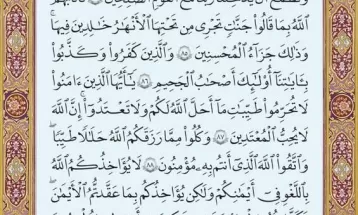 ٱللَّهُ بِمَا قَالُوا۟ جَنَّٰتٍ تَجْرِى مِن تَحْتِهَا ٱلْأَنْهَٰرُ خَٰلِدِينَ فِيهَا
وَذَٰلِكَ جَزَآءُ ٱلْمُحْسِنِينَ ٨٥ وَٱلَّذِينَ كَفَرُوا۟ وَكَذَّبُوا۟
بِـَٔايَٰتِنَآ أُو۟لَٰٓئِكَ أَصْحَٰبُ ٱلْجَحِيمِ ٨٦ يَٰٓأَيُّهَا ٱلَّذِينَ ءَامَنُوا۟
لَا تُحَرِّمُوا۟ طَيِّبَٰتِ مَآ أَحَلَّ ٱللَّهُ لَكُمْ وَلَا تَعْتَدُوٓا۟ إِنَّ ٱللَّهَ
لَا يُحِبُّ ٱلْمُعْتَدِينَ ٨٧ وَكُلُوا۟ مِمَّا رَزَقَكُمُ ٱللَّهُ حَلَٰلًا طَيِّبًا
وَٱتَّقُوا۟ ٱللَّهَ ٱلَّذِىٓ أَنتُم بِهِۦ مُؤْمِنُونَ ٨٨ لَا يُؤَاخِذُكُمُ ٱللَّهُ
بِٱللَّغْوِ فِىٓ أَيْمَٰنِكُمْ وَلَٰكِن يُؤَاخِذُكُم بِمَا عَقَّدتُّمُ ٱلْأَيْمَٰنَ